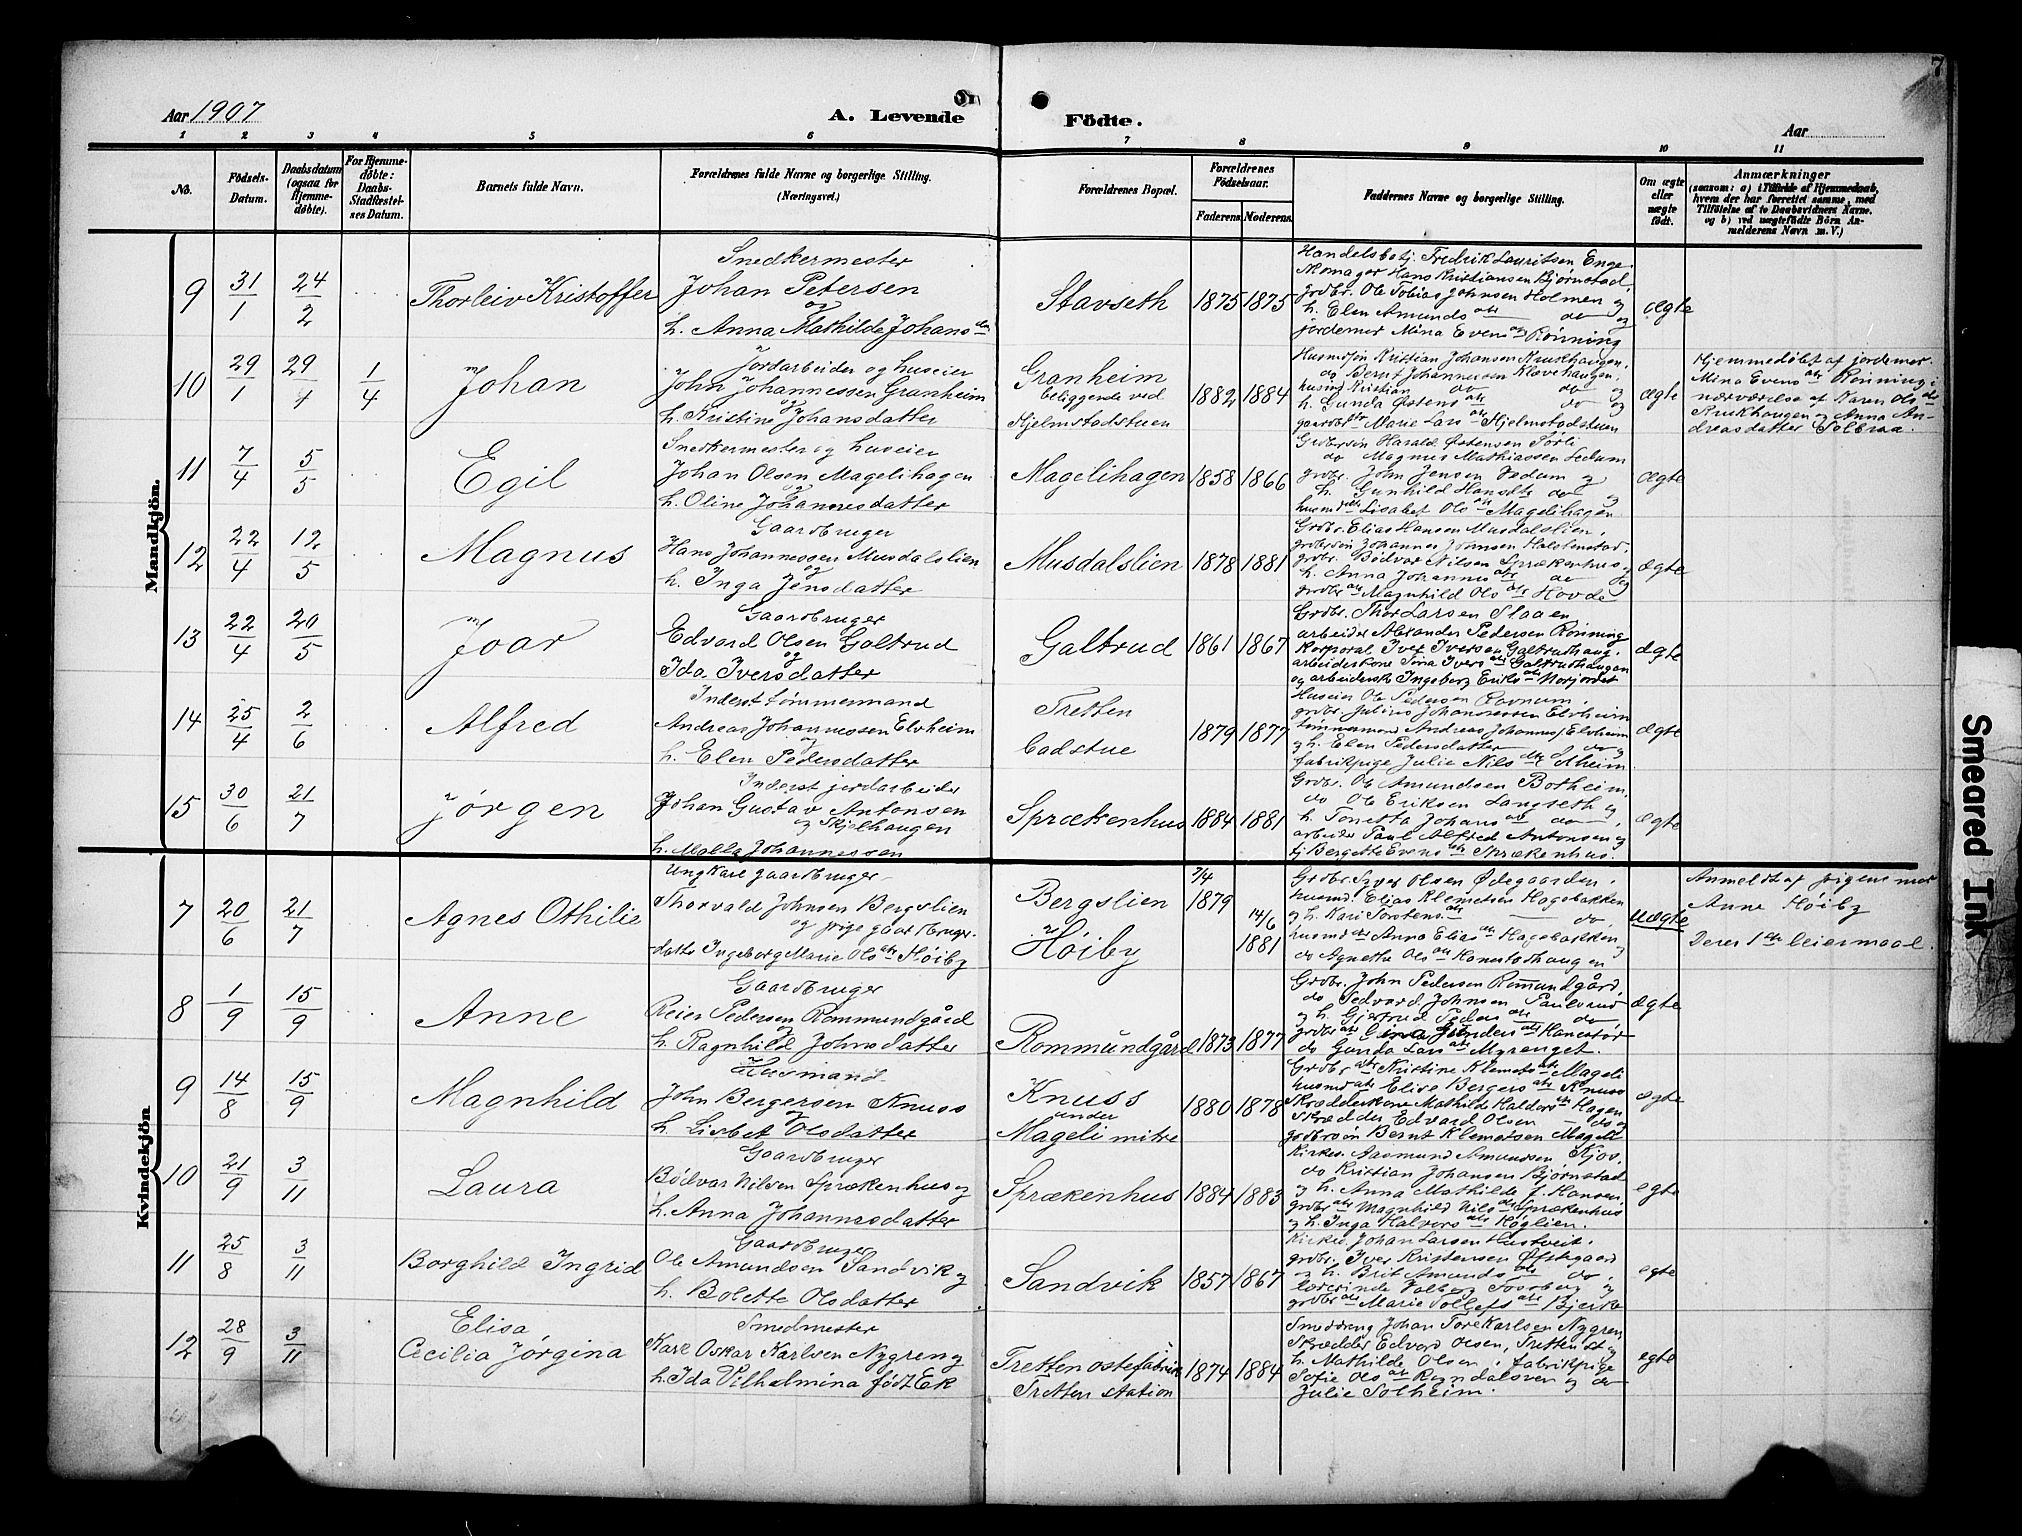 7
Aar 1907
A. Levende Födte.
Aar
1 2 3 4 5 6 7 8 9 10 11
No.
Födsels-Datum.
Daabsdatum (ogsaa for Hjemme-döbte).
For Hjemme-döbte: Daabs-Stadfæstel-ses Datum.
Barnets fulde Navn.
Forældrenes fulde Navne og borgerlige Stilling. (Næringsvei.)
Forældrenes Bopæl.
Forældrenes Födselsaar.
Faderens Moderens.
Faddernes Navne og borgerlige Stilling.
Om ægte eller uægte födt.
Anmærkninger
(saasom: a) i Tilfælde af Hjemmedaab, hvem der har forrettet samme, med Tilföielse af to Daabsvidners Navne, og b) ved uægtefödte Börn An-melderens Navn m. V.)
Mandkjön.
9 31/1 24/2 Thorleiv Kristoffer
Snedkermester
Johan Petersen
og
h. Anna Mathilde Johansdtr
Stavseth 1875 1875
Handelsbetj. Fredrik Lauritsen Enge
Hans Kristiansen Bjørnstad,
grdbr. Ole Tobias Johnsen Holmen og
h. Elen Amundsdtr do og
jordemor Mina Evensdtr Rønning
ægte
10 29/1 29/1 1/4 Johan
Jordarbeider og huseier
John Johannessen Granheim
og
h. Kristine Johansdatter
Granheim
beliggende ved
Hjelmstadstuen
1882 1884
Husmdsøn Kristian Johansen Krukhaugen,
do Bernt Johannessen Kløvehaugen,
husmd Kristian do og
h. Gunda Østensdtr do og
gaardbr Marie Larsdtr Hjelmstadstuen
ægte
Hjemmedøbt af jordemor
Mina Evensdtr Rønning i
nærværelse af Karen Olsdtr
Krukhaugen og Anna An-
dreasdatter Solbraa.
11 7/4 5/5 Egil
Snedkermester og huseier
Johan Olsen Magelihagen
og
h. Oline Johannesdatter
Magelihagen 1858 1866
Grdbrsøn Harald Østensen Tørli
do Magnus Mathiassen Sedum
grdbr. John Jensen Sedum og
h. Gunhild Hansdtr do og
husmdsdtr Lisabet Olsdtr Magelihagen
ægte
12 22/4 12/5 Magnus
Gaardbruger
Hans Johannessen Musdalslien
og
h. Inga Jensdatter
Musdalslien 1878 1881
Grdbr. Elias Hansen Musdalslien,
grdbrsøn Johannes Johnsen Holstenstad,
grdbr. Bødvar Nilsen Sprækenhus og
h. Anna Johannesdtr do og
grdbrdtr Magnhild Olsdtr Hovde
ægte
13 22/4 20/5 Joar
Gaardbruger
Edvard Olsen Galtrud
og
Ida Iversdatter
Galtrud 1861 1867
Grdbr. Thor Larsen Slaaen
arbeider Alexander Pedersen Rønning
korporal Iver Iversen Galtrudhaug.
arbeiderkone Tina Iversdtr Galtrudhaugen
og arbeidersk Ingeborg Eriksdtr Norjordet
ægte
14 25/4 2/6 Alfred
Inderst tømmermand
Andreas Johannessen Elvheim
og
h. Elen Pedersdatter
Tretten
badstue
1879 1877
Huseier Ole Pedersen Ravnum.
grdbr. Julius Johannessen Elvheim
tømmermand Andreas Johannes. Elvheim
og h. Elen Pedersdatter do og
fabrikpige Julie Nilsdtr Solheim
ægte
15 30/6 21/7 Jørgen
Inderst jordarbeider
Johan Gustav Antonsen
og Skjelhaugen
h. Malla Johannessen
Sprækenhus 1884 1881
Grdbr. Ole Amundsen Botheim,
do Ole Eriksen Langseth og
h. Tonetta Johansdtr do,
arbeider Paul Alfred Antonsen og
tj Bergette Evensdtr Sprækenhus.
ægte
Kvindekjön.
7 20/6 21/7 Agnes Othilie
Ungkarl gaardbruger
Thorvald Johnsen Bergslien
og pige gaardbruger
datter Ingeborg Marie Olsdtr Høiby
Bergslien
Høiby
7/4 1879
14/6 1881
Grdbr. Syver Olsen Ødegaarden.
husmd. Elias Klemetsen Hagebakken
og h. Kari Torstensdtr do
husmdsdtr Anna Eliasdtr Hagebakken og
do Agnethe Olsdtr Hanestadhaugen
uægte
Anmeldt af pigens mor
Anne Høiby
Deres 1ste leiermaal.
8 1/9 15/9 Anne
Gaardbruger
Reier Pedersen Rommundgård
og
h. Ragnhild Johnsdatter
Rommundgård 1873 1877
Grdbr. John Pedersen Romundgård,
do Pedvard Johnsen Paulsrud
og h. Gjertrud Pedersdtr do
do Gunda Larsdtr Myrenget.
ægte
9 14/8 15/9 Magnhild
Husmand
John Bergersen Knuss
og
h. Lisbet Olsdatter
Knuss
under
Mageli mitre
1880 1878
Grdbrdtr Kristine Klemetsdtr Mageli
husmdsdtr Elise Bergersdtr Knuss
Skrædderkone Mathilde Haldorsdtr Hagen
Skrædder Edvard Olsen do og
grdbrsøn Bernt Klemetsen Mageli
egte
10 21/9 3/11 Laura
Gaardbruger
Bødvar Nilsen Sprækenhus og
h. Anna Johannesdatter
Sprækenhus 1884 1883
Kirkes. Aasmund Amundsen Kjos.
do Kristian Johansen Bjørnstad
og h. Anna Mathilde f. Hansen,
grdbrdtr Magnhild Nilsdtr Sprækenhus
og h. Inga Halvorsdtr Høglien.
egte
11 25/8 3/11 Borghild Ingrid
Gaardbruger
Ole Amundsen Sandvik og
h. Bolette Olsdatter
Sandvik 1857 1867
Kirkes. Johan Larsen Hustveit.
grdbr. Iver Kristensen Øfstegaard
og h. Brit Amundsdtr do,
lærerinde Valborg og
grdbrdtr Marie Tollefsdtr Bjerke
egte
12 28/9 3/11 Elisa
Cecilia Jørgina
Smedmester
Karl Oskar Karlsen Nygren og
h. Ida Vilhelmina født Ek
Tretten ostefabrik
Tretten station
1874 1884
Smeddreng Johan Tore Karlsen Nygren,
Skrædder Edvard Olsen, Tretten st og
h. Mathilde Olsen, fabrikpige
Sofie Olsdtr Rogndalsven og do
Julie Solheim.
egte
Smeared Ink